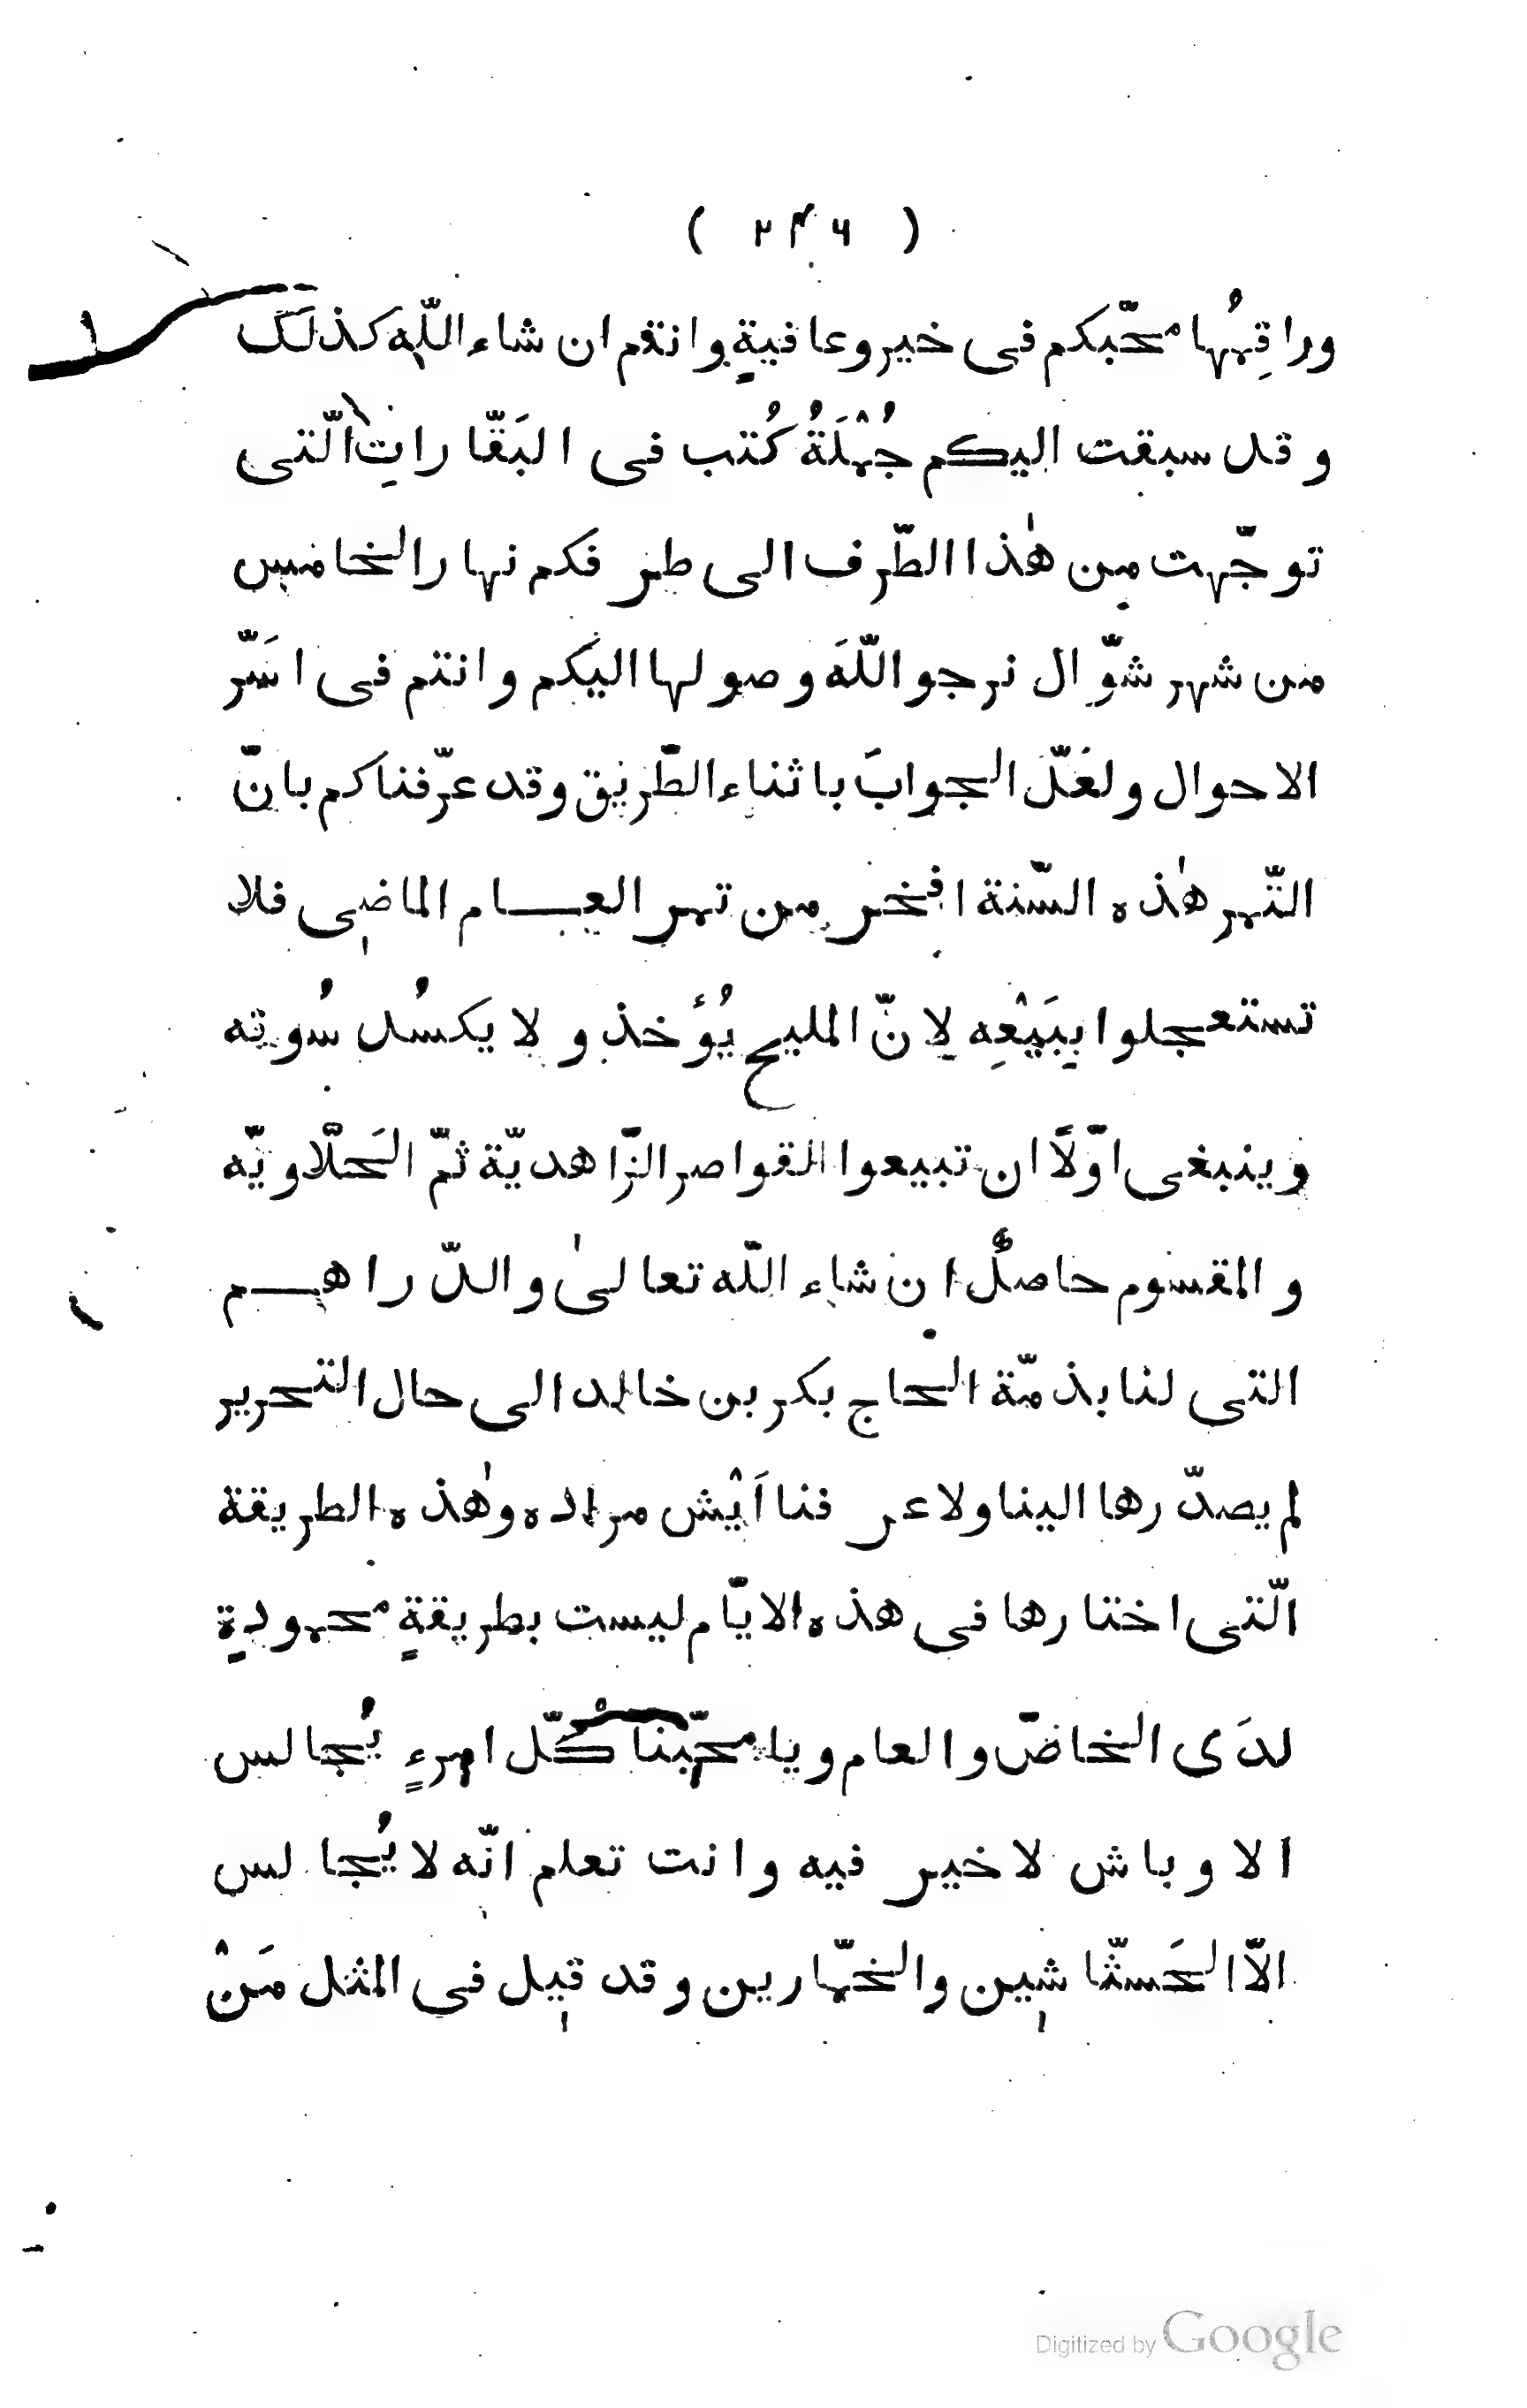 ( ۲۴۶ )
وراقِمُها محّبكم فى خير وعافيةٍ وانتم ان شاء اللّه كذلك
وقد سبقت اليكم جُمْلَةُ كُتب فى البَقّاراتِ الّتى
توجّهت من هٰذا الطّرف الى طرفكم نهار الخامس
من شهر شوّال نرجو اللّهَ وصولها اليكم وانتم فى اسَرّ
الاحوال ولعَلّ الجوابَ باثناء الطّريق وقد عرّفناكم بانّ
التّمر هٰذه السّنة افخر من تمر العام الماضى فلا
تستعجلوا ببَيْعِه لِانّ المليح يُؤَخذ ولا يكسُد سُوقه
وينبغى اوّلًا ان تبيعوا القواصر الزّاهديّة ثمّ الحَلّاويّه
والمقسوم حاصلٌ ان شاء اللّه تعالىٰ والدّراهم
التى لنا بذمّة الحاج بكر بن خالد الى حال التحرير
لم يصدّرها الينا ولا عرفنا اَيْش مراده وهٰذه الطريقة
الّتى اختارها فى هذه الايّام ليست بطريقةٍ محمودةٍ
لدَى الخاصّ والعام ويا محبّنا كلّ امرءٍ يُجالس
الاوباش لا خير فيه وانت تعلم انّه لا يُجالس
الّا الحَشّاشين والخمّارين وقد قيل فى المثل مَنْ
Digitized by Google